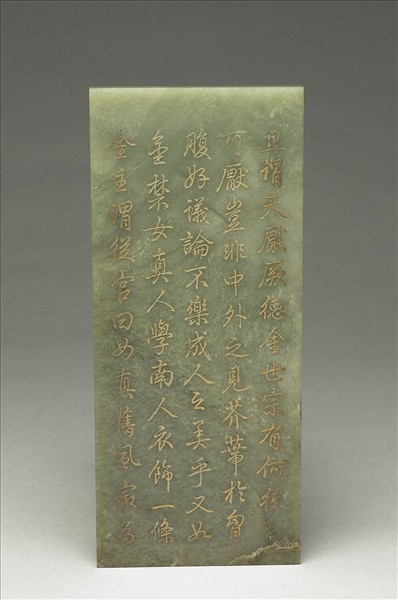 且謂天厭厥德金世宗有何德
可厭豈非中外之見芥蔕於胷
腹好議論不樂成人之美乎又如
金禁女真人學南人衣飾一條
金主謂從官曰女真舊風最為